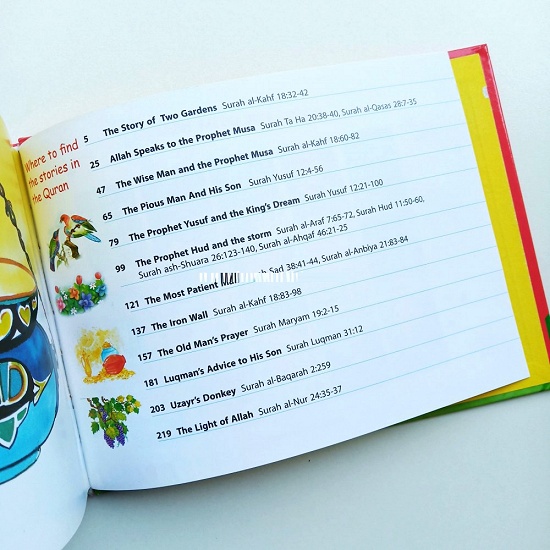 Where to find
the stories in
the Quran
5 The Story of Two Gardens Surah al-Kahf 18:32-42
25 Allah Speaks to the Prophet Musa Surah Ta Ha 20:38-40, Surah al-Qasas 28:7-35
47 The Wise Man and the Prophet Musa Surah al-Kahf 18:60-82
65 The Pious Man And His Son Surah Yusuf 12:4-56
79 The Prophet Yusuf and the King's Dream Surah Yusuf 12:21-100
99 The Prophet Hud and the storm Surah al-Araf 7:65-72, Surah Hud 11:50-60,
Surah ash-Shuara 26:123-140, Surah al-Ahqaf 46:21-25
121 The Most Patient Sad 38:41-44, Surah al-Anbiya 21:83-84
137 The Iron Wall Surah al-Kahf 18:83-98
157 The Old Man's Prayer Surah Maryam 19:2-15
181 Luqman's Advice to His Son Surah Luqman 31:12
203 Uzayr's Donkey Surah al-Baqarah 2:259
219 The Light of Allah Surah al-Nur 24:35-37